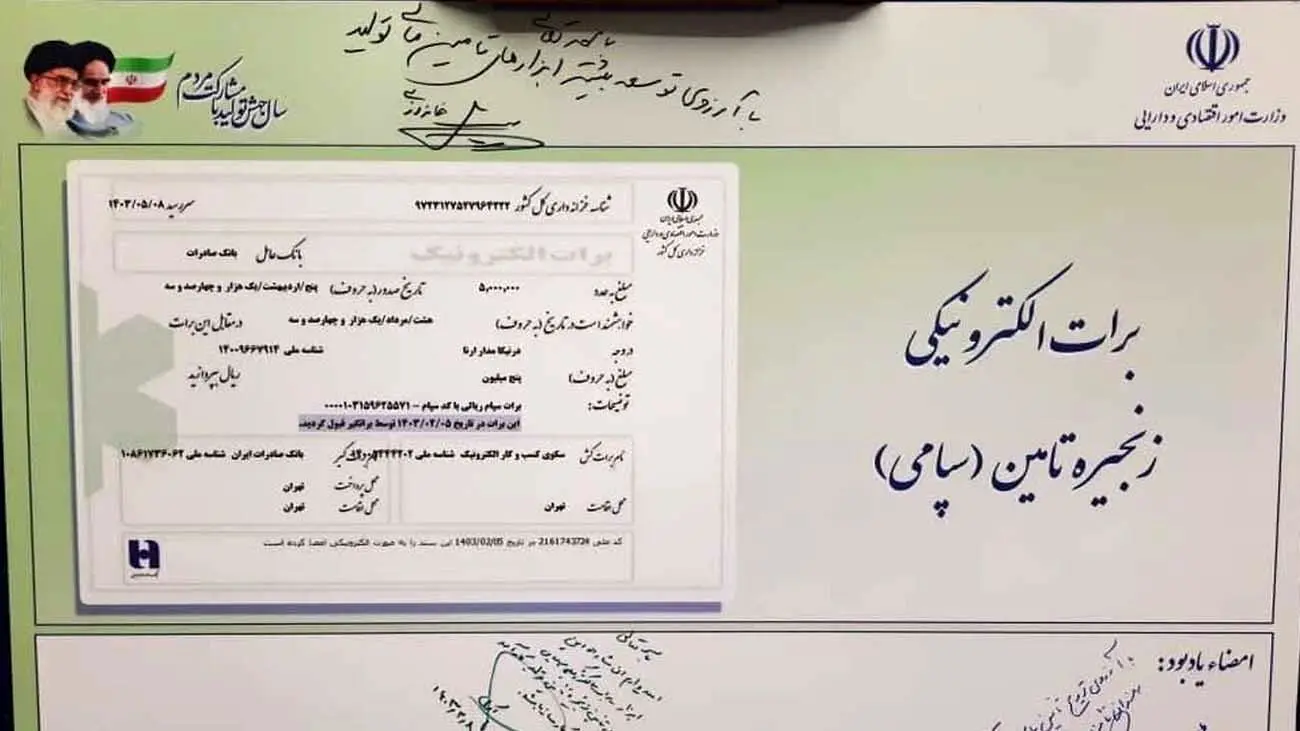 باسمه تعالی
با آرزوی توسعه بیشتر ابزارهای تامین مالی تولید
خاندوزی
جمهوری اسلامی ایران
وزارت امور اقتصادی و دارایی
سال جهش تولید با مشارکت مردم
برات الکترونیکی
زنجیره تامین (سپامی)
جمهوری اسلامی ایران
وزارت امور اقتصادی و دارایی
خزانه داری کل کشور
شناسه خزانه داری کل کشور ۹۷۲۳۱۲۷۵۲۷۹۶۴۲۲۲ سررسید ۱۴۰۳/۰۵/۰۸
برات الکترونیک بانک عامل بانک صادرات
مبلغ به عدد ۵,۰۰۰,۰۰۰ تاریخ صدور (به حروف) پنج/اردیبهشت/یک هزار و چهارصد و سه
خواهشمند است در تاریخ (به حروف) هشت/مرداد/یک هزار و چهارصد و سه در مقابل این برات
در وجه درنیکا مدار ارنا شناسه ملی ۱۴۰۰۹۶۶۷۹۱۴
مبلغ (به حروف) پنج میلیون ریال بپردازید
توضیحات: برات سپام ریالی با کد سپام – ۰۰۰۰۱۰۳۱۵۹۶۲۵۵۷۱
این برات در تاریخ ۱۴۰۳/۰۲/۰۵ توسط براتگیر قبول گردید.
نام برات کش سکوی کسب و کار الکترونیک شناسه ملی
محل اقامت تهران
بانک صادرات ایران شناسه ملی ۱۰۸۶۱۷۳۶۰۶۲
محل پرداخت تهران
محل اقامت تهران
کد ملی 2161743724 در تاریخ 1403/02/05 این سند را به صورت الکترونیکی امضا کرده است
امضاء یادبود:
باسمه تعالی